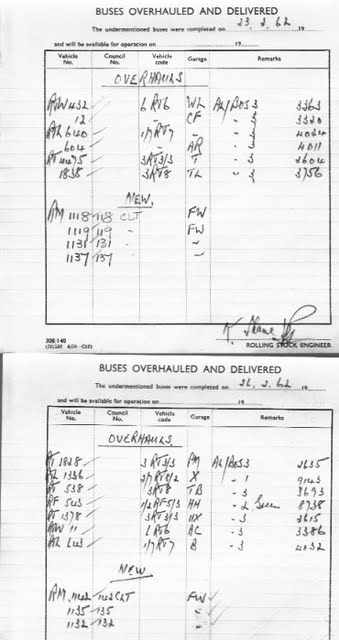 BUSES OVERHAULED AND DELIVERED
The undermentioned buses were completed on 23.2.62 19
and will be available for operation on 19
Vehicle No. Council No. Vehicle code Garage Remarks
OVERHAULS
RW 432 6RT6 WL AL/BOS 3 3363
12 - CF - 3320
RL 640 1/7RT7 - - 4034
604 - AR - 4011
RT 4475 3RT3/3 T - 3 2604
1838 3RT8 TL - 3 3756
NEW.
RM 1118 118 CLT FW
1119 119 - FW
1131 131 - -
1137 137 -
ROLLING STOCK ENGINEER
308.140
BUSES OVERHAULED AND DELIVERED
The undermentioned buses were completed on 26.2.62 19
and will be available for operation on 19
Vehicle No. Council No. Vehicle code Garage Remarks
OVERHAULS
RT 1828 3RT3/3 AL/BOS 3 2635
1336 X - 1 9143
RT 538 3RT8 TB - 3 3693
RF 543 HH - 2 Green 8738
RT 1378 3RT3/3 - 3 2615
RW 11 6RT6 AC - 3 3386
RL 643 1/7RT7 B - 3 4032
NEW
RM 1142 142 CLT FW
1135 135 -
1132 132 -